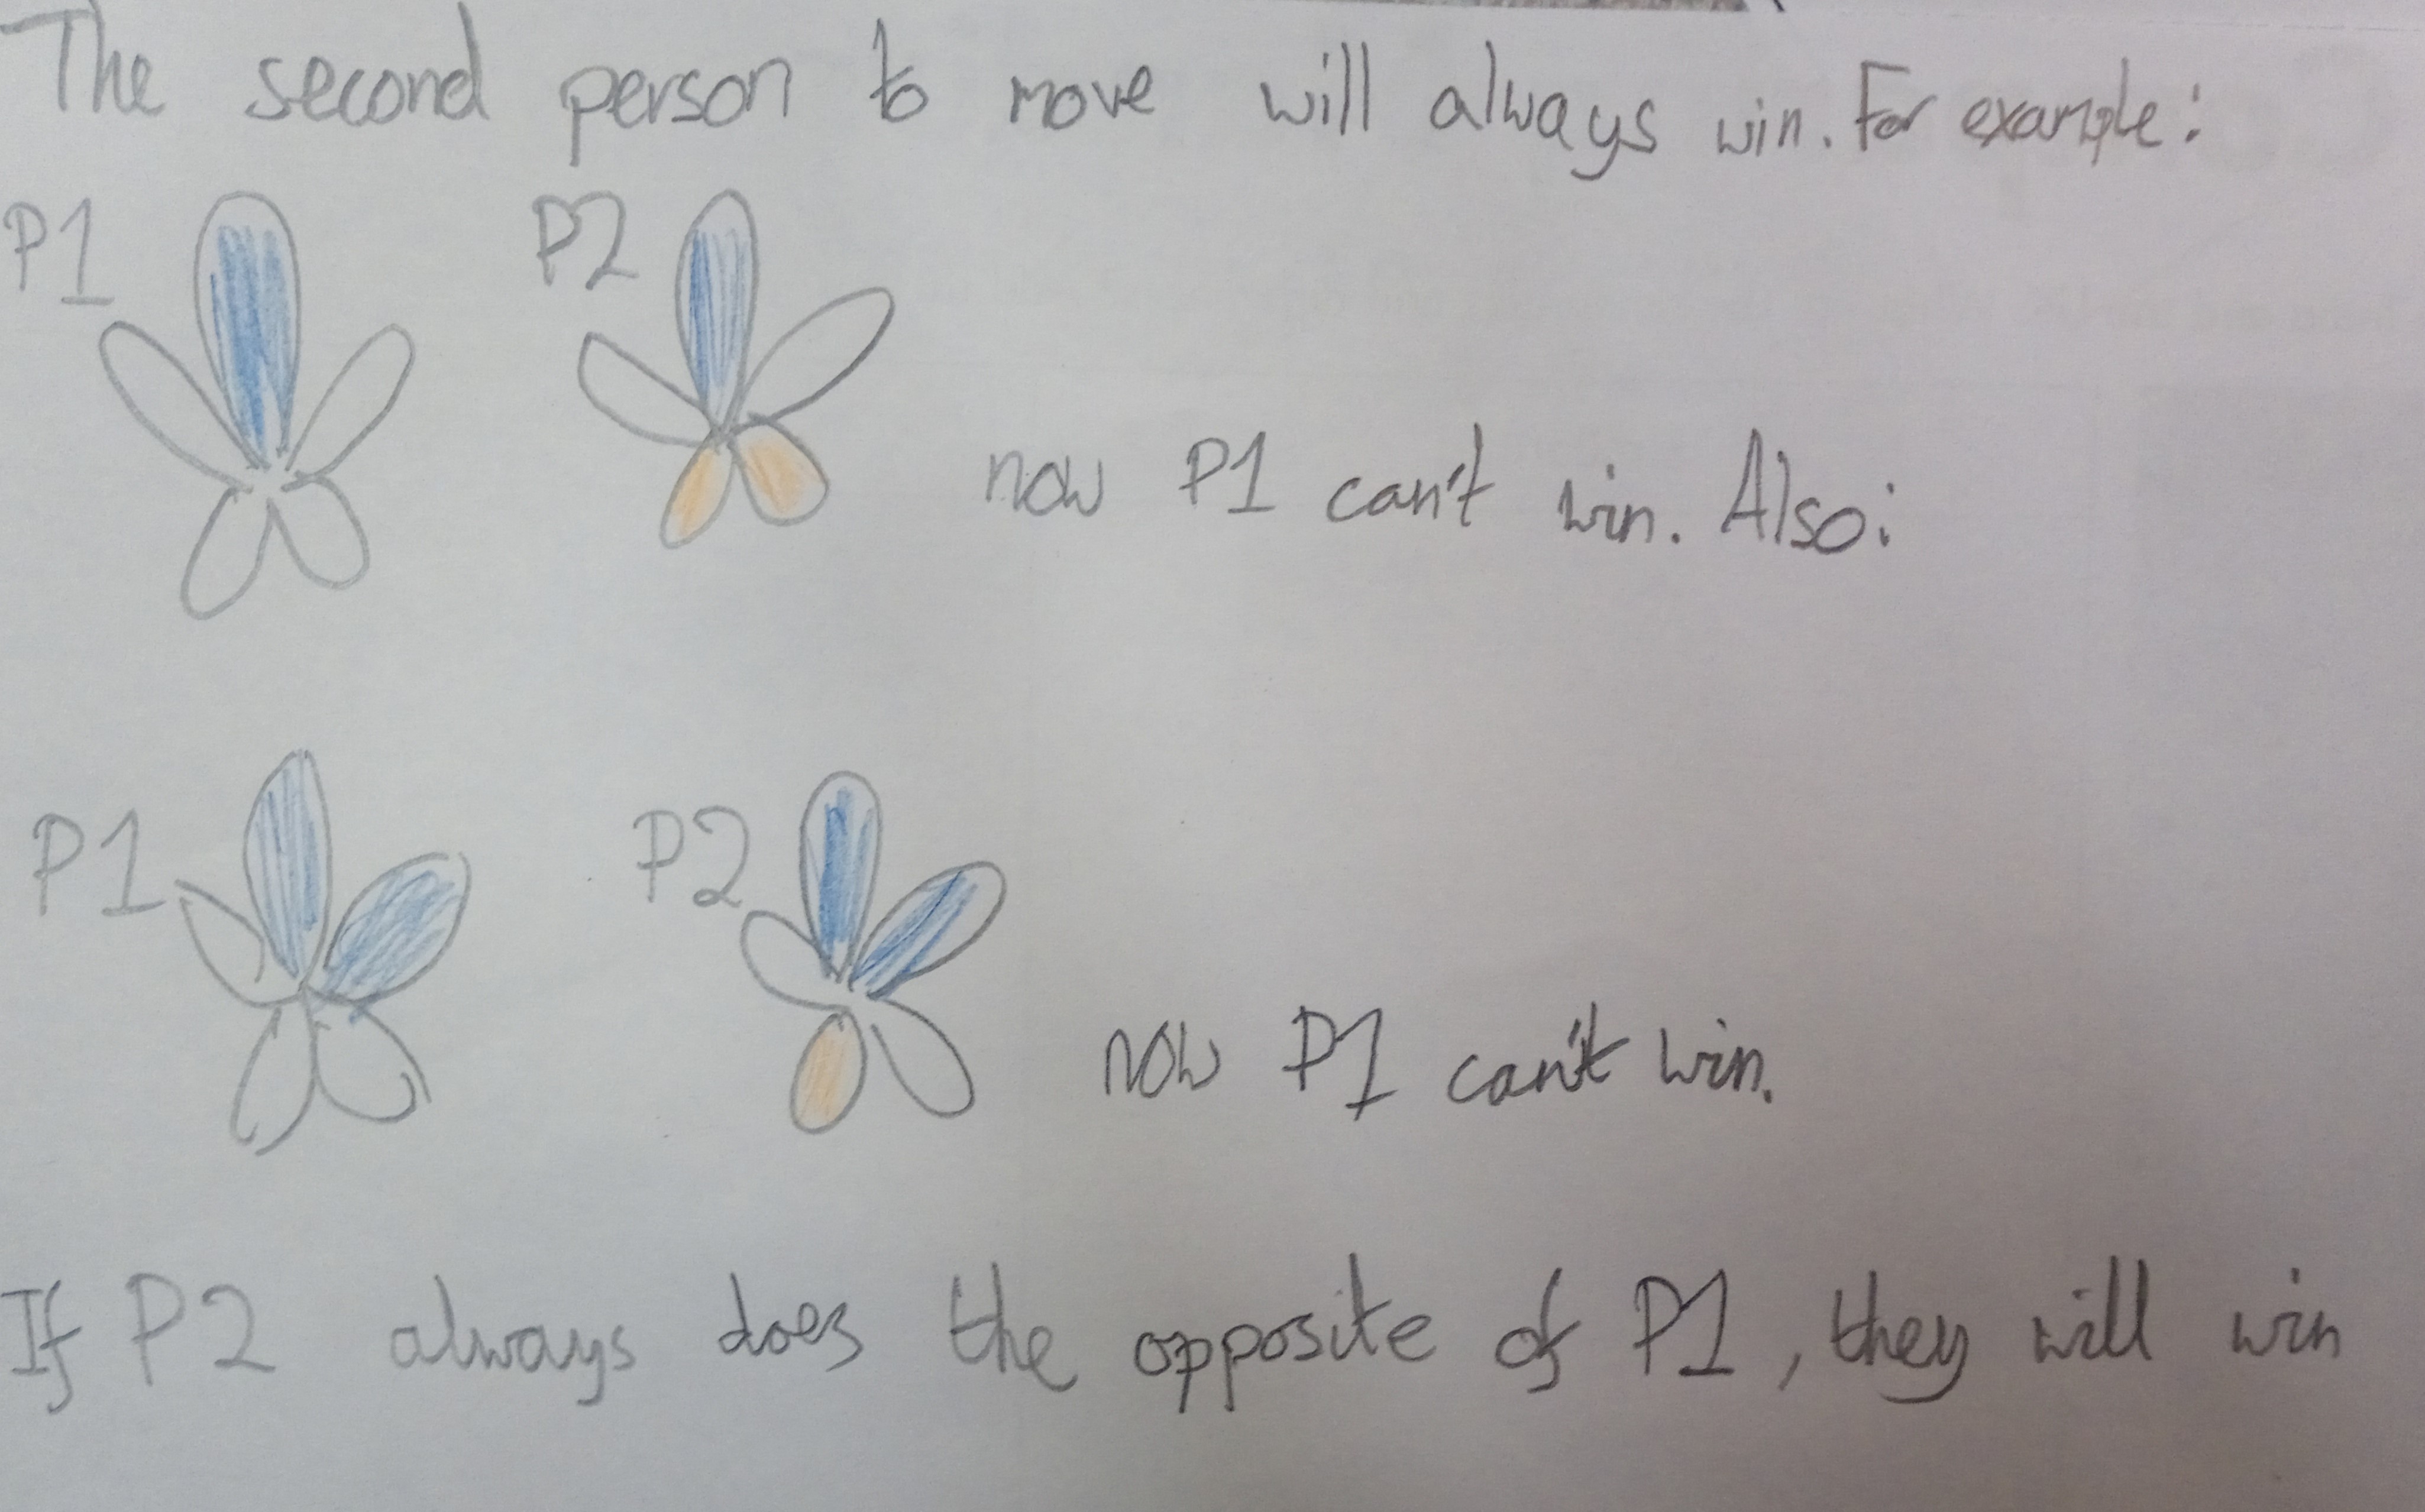 The second person to move will always win. For example:
P1 P2 now P1 can't win. Also:
P1 P2 now P1 can't win.
If P2 always does the opposite of P1, they will win